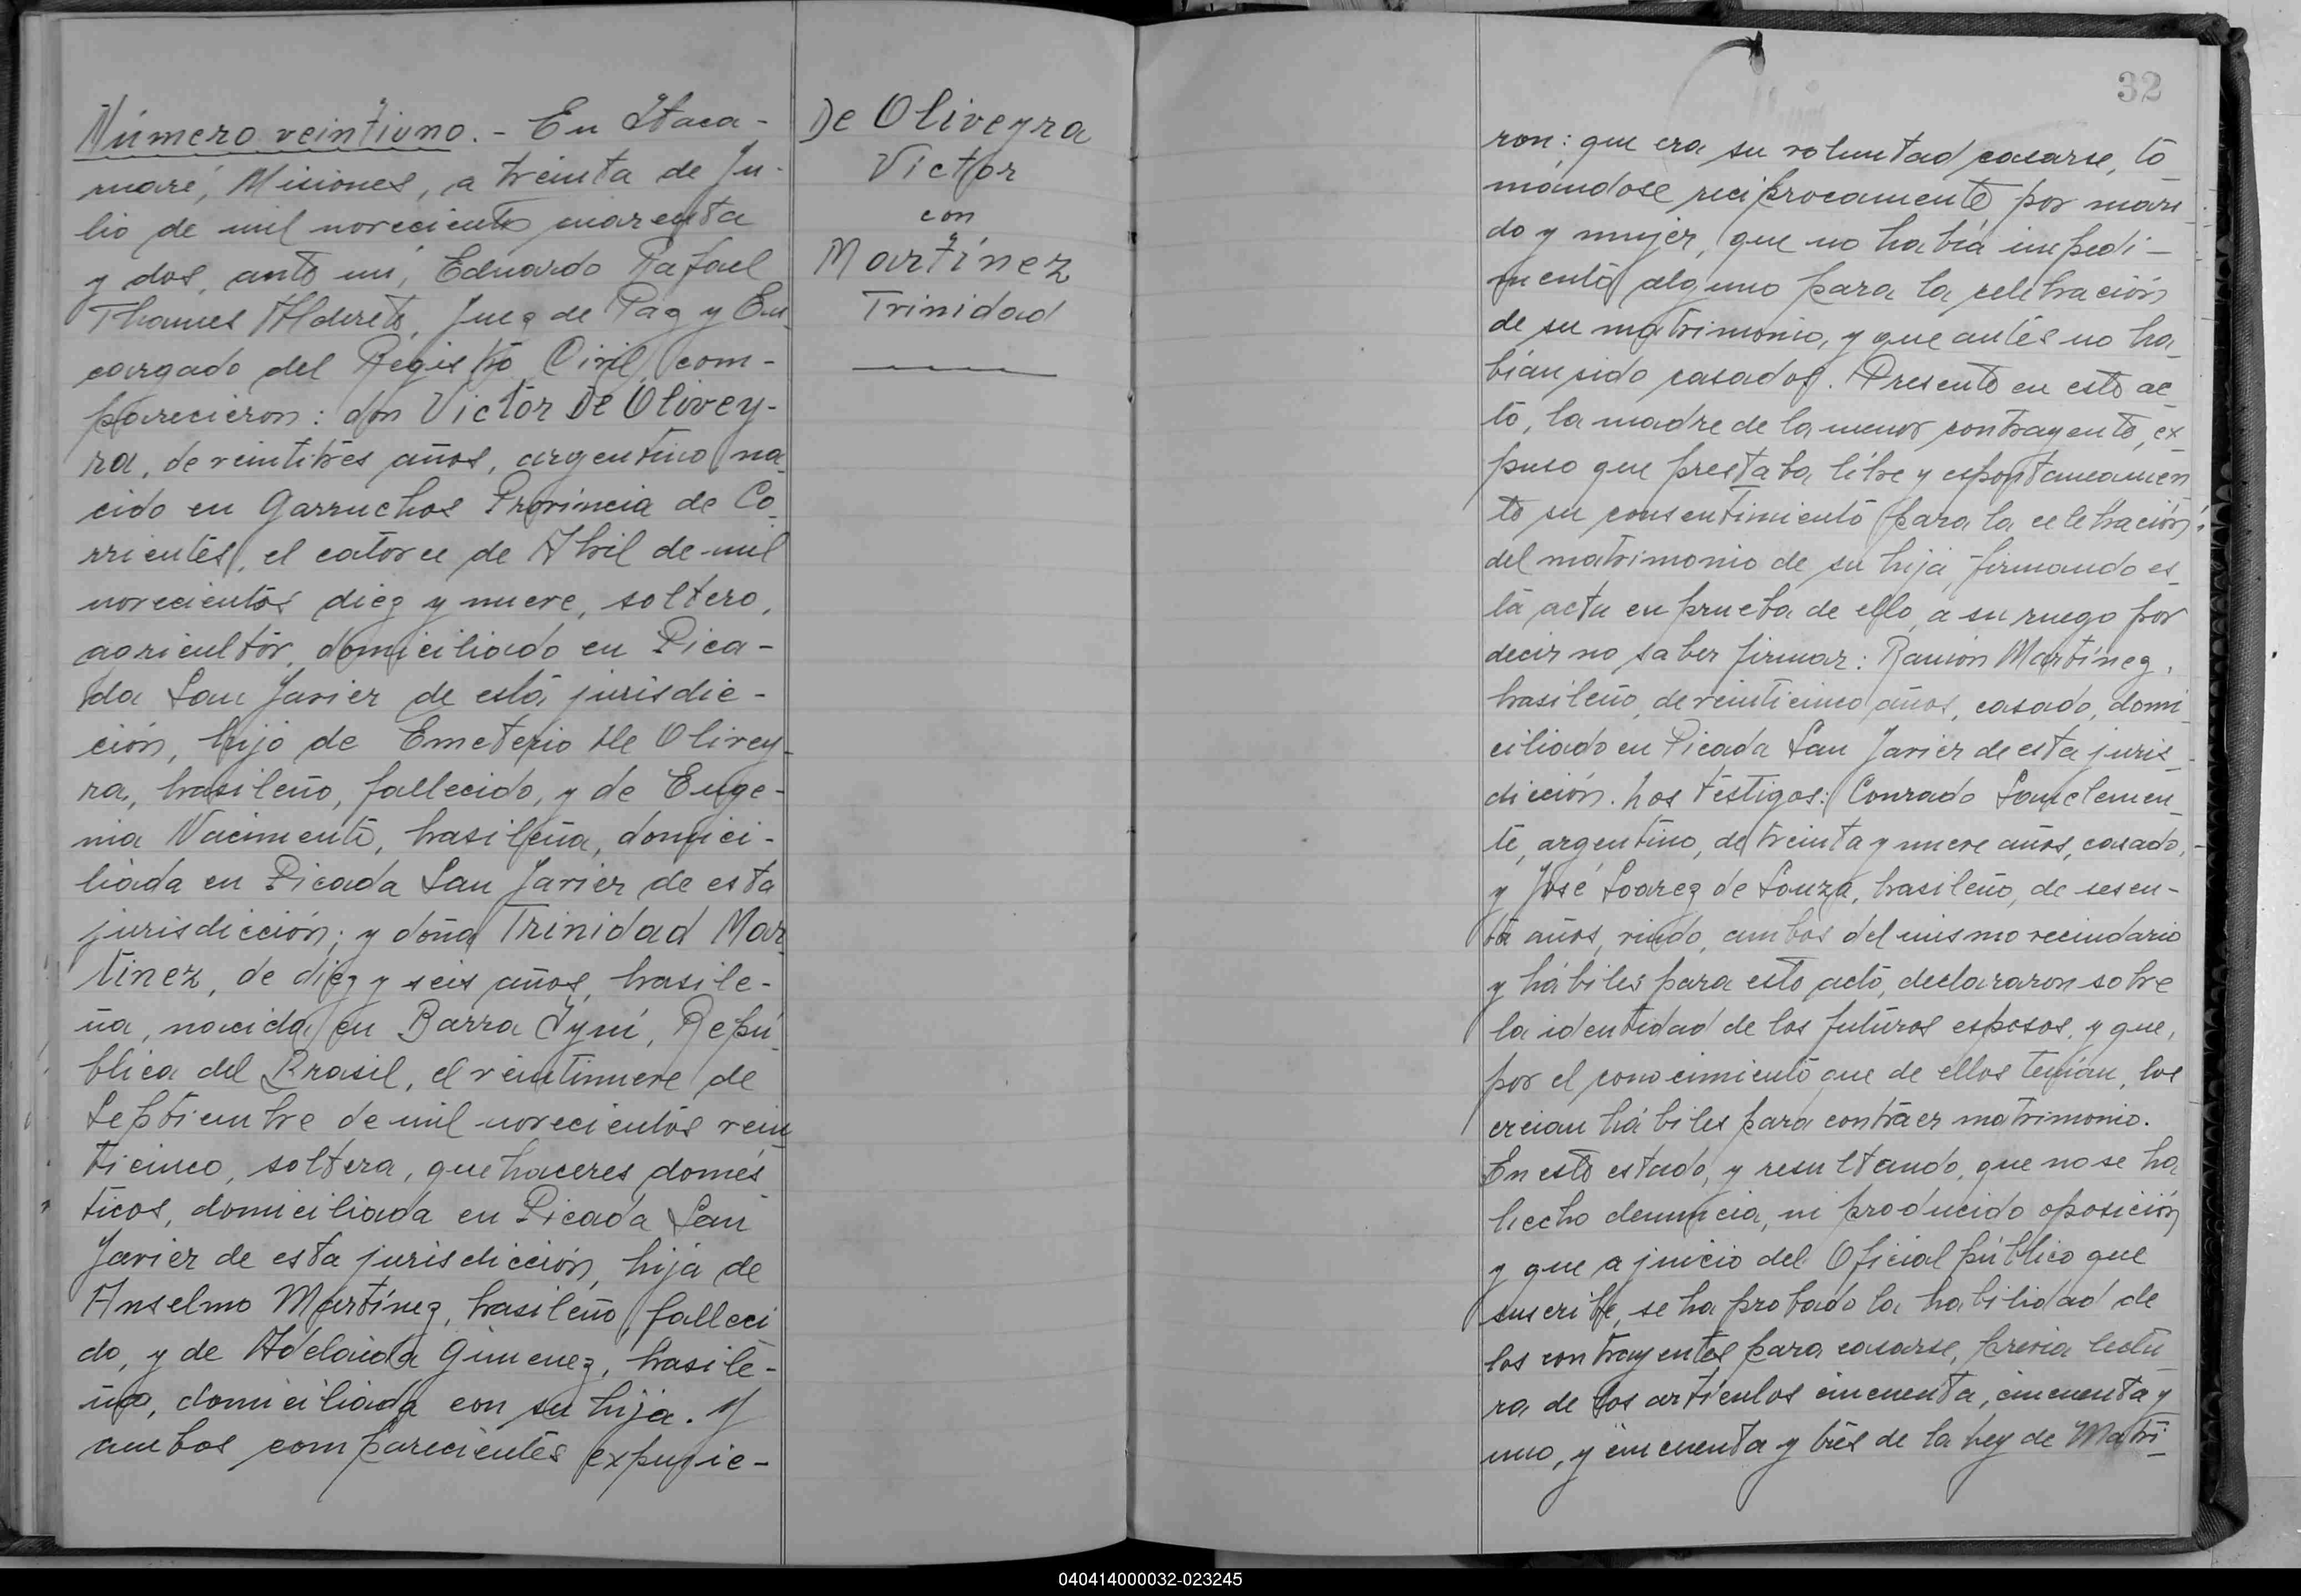 Número veintiuno. - En Itaca-
maré, Misiones, a treinta de Ju-
lio de mil novecientos cuarenta
y dos, ante mí, Eduardo Rafael
Thames Alderete, Juez de Paz y En_
cargado del Registro Civil, com-
parecieron: don Victor De Olivey-
ra, de veintitrés años, argentino na_
cido en Garruchos Provincia de Co_
rrientes, el catorce de Abril de mil
novecientos diez y nueve, soltero,
agricultor, domiciliado en Pica-
da San Javier de esta jurisdic-
ción, hijo de Emeterio De Olivey_
ra, brasileño, fallecido, y de Euge-
nia Nacimento, brasileña, domici-
liada en Picada San Javier de esta
jurisdicción; y doña Trinidad Mar_
tinez, de diez y seis años, brasile-
ña, nacida en Barra Iyuí, Repú_
blica del Brasil, el veintinueve de
Septiembre de mil novecientos vein_
ticinco, soltera, quehaceres domés_
ticos, domiciliada en Picada San
Javier de esta jurisdicción, hija de
Anselmo Martínez, brasileño, falleci_
do, y de Adelaida Gimenez, brasile-
ña, domiciliada con su hija. Y
ambos comparecientes expusie-
De Oliveyra
Victor
con
Martínez
Trinidad
32
ron: que era su voluntad casarse, to_
mandose reciprocamente por mari_
do y mujer, que no había impedi-
mento alguno para la celebración
de su matrimonio, y que antes no ha_
bían sido casados. Presente en este ac_
to, la madre de la menor contrayente, ex_
puso que prestaba libre y espontaneamen_
te su consentimiento para la celebración
del matrimonio de su hija, firmando es_
ta acta en prueba de ello, a su ruego por
decir no saber firmar: Ramón Martínez,
brasileño, de veinticinco años, casado, domi_
ciliado en Picada San Javier de esta juris_
dicción. Los testigos: Conrado Sanclemen_
te, argentino, de treinta y nueve años, casado,
y José Soarez de Souza, brasileño, de sesen-
ta años, viudo, ambos del mismo vecindario
y hábiles para este acto, declararon sobre
la identidad de los futuros esposos, y que,
por el conocimiento que de ellos tenían, los
creian hábiles para contraer matrimonio.
En este estado, y resultando, que no se ha
hecho denuncia, ni producido oposición
y que a juicio del Oficial público que
suscribe, se ha probado la habilidad de
los contrayentes para casarse, previa lectu_
ra de los artículos cincuenta, cincuenta y
uno, y cincuenta y tres de la Ley de Matri_
040414000032-023245